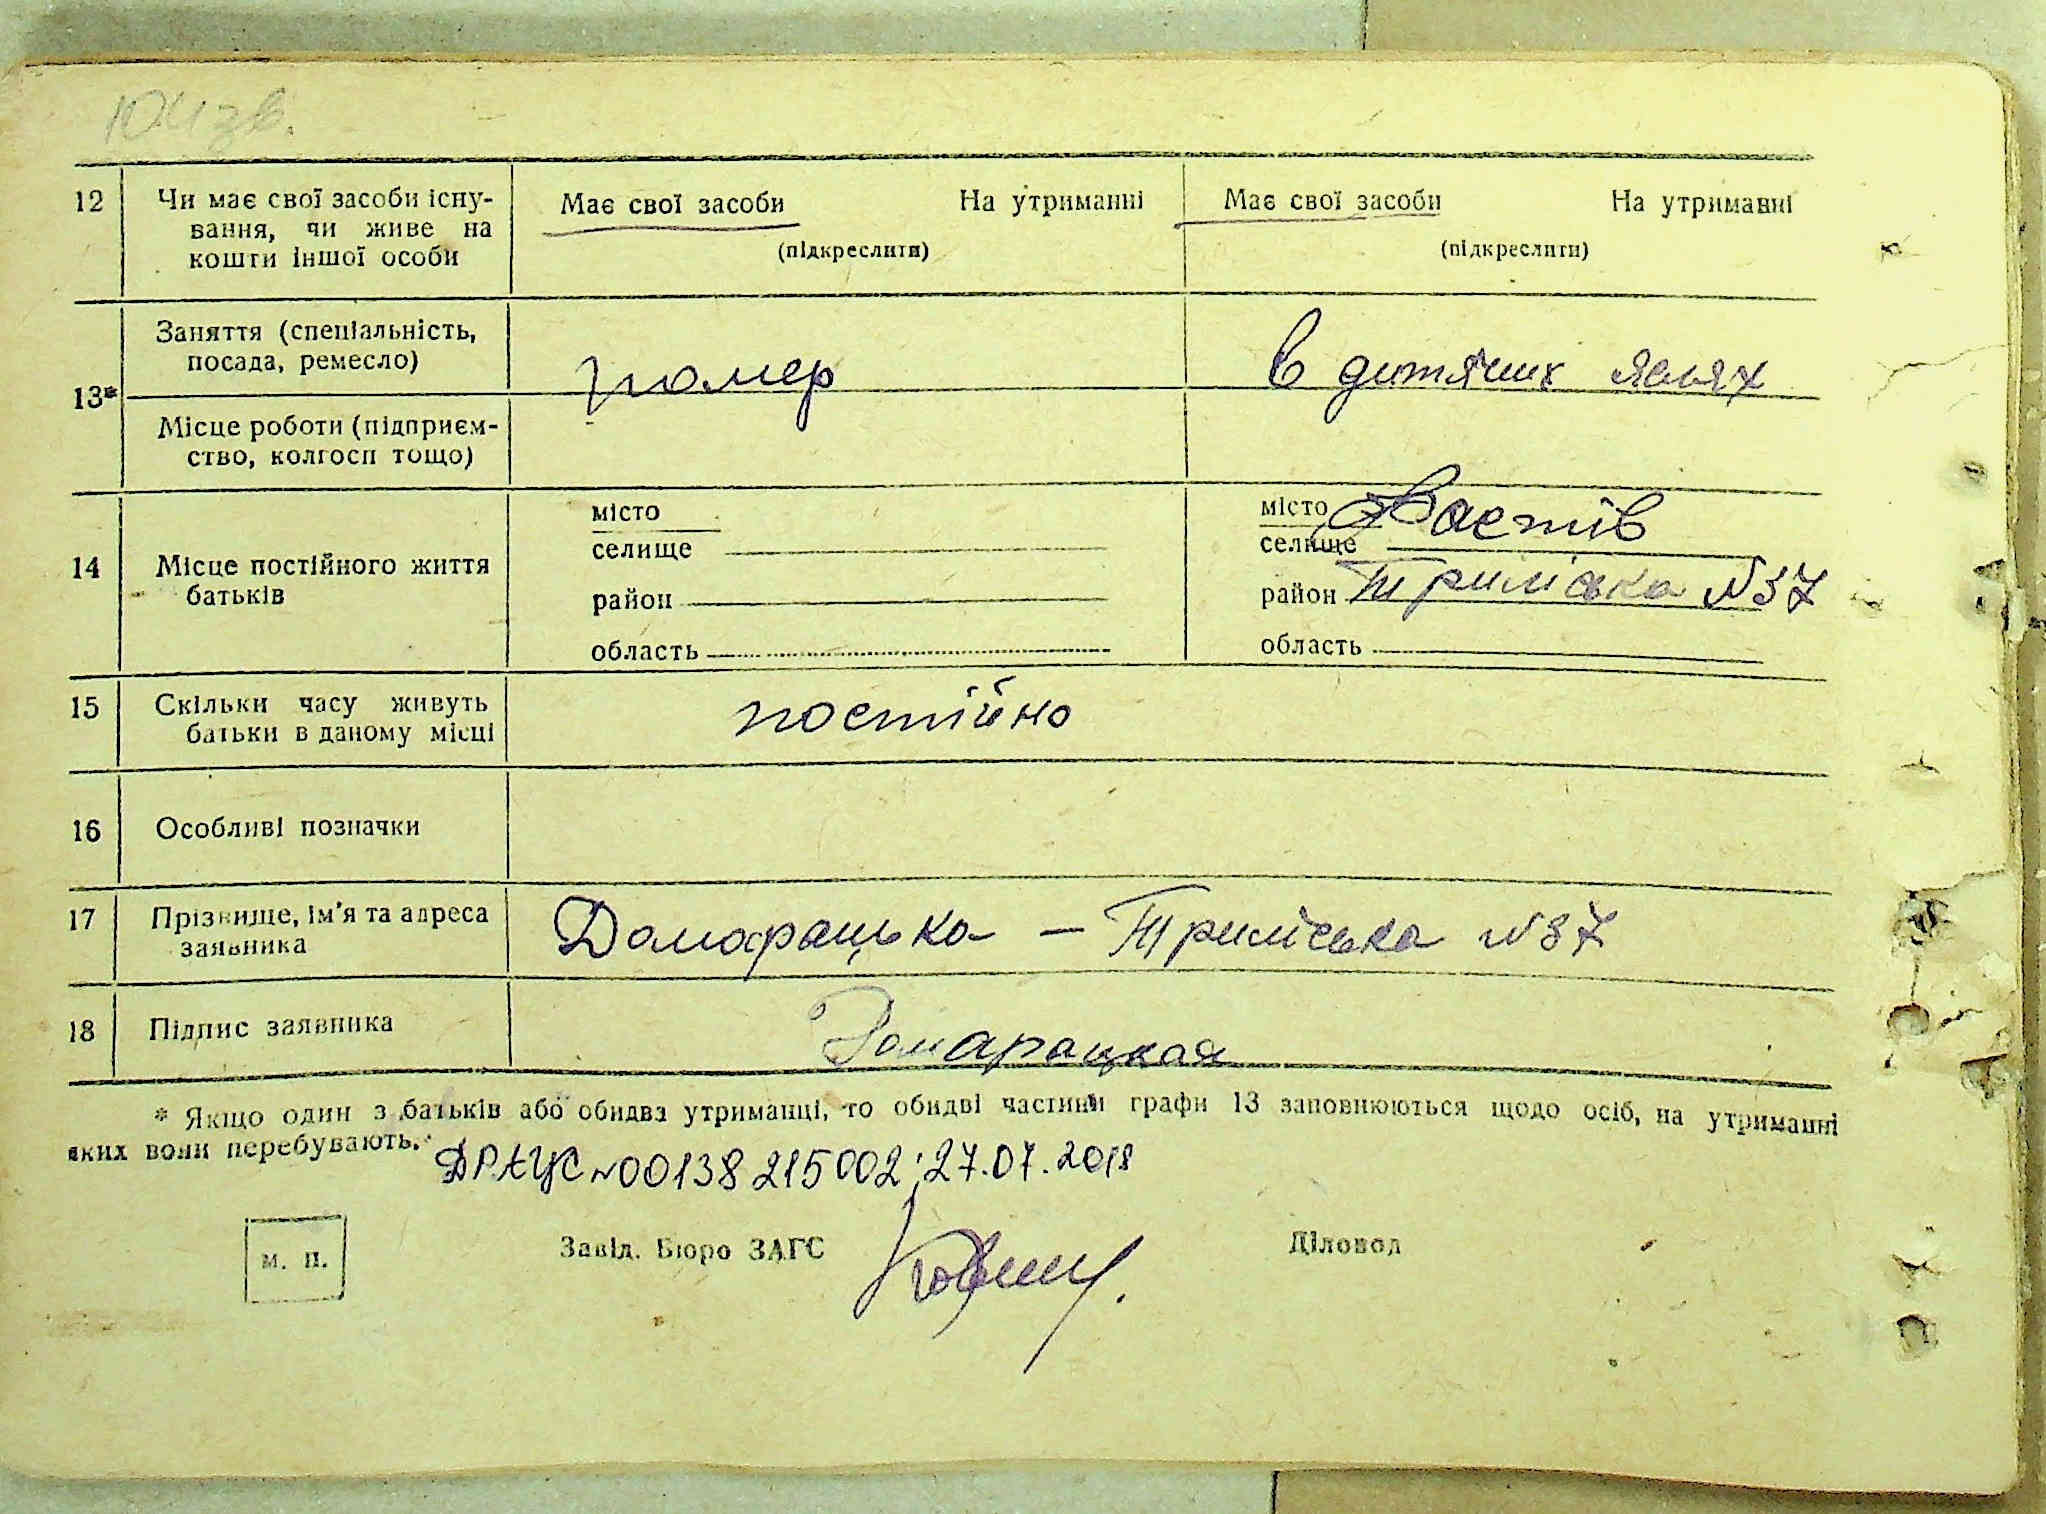 104 зв.
12 Чи має свої засоби існу- Має свої засоби На утриманні Має свої засоби На утриманні
вання, чи живе на (підкреслити) (підкреслити)
кошти іншої особи
13* Заняття (спеціальність,
посада, ремесло) помер в дитячих яслях
Місце роботи (підприєм-
ство, колгосп тощо)
14 Місце постійного життя
батьків
місто місто Фастів
селище селище
район район Триліська N37
область область
15 Скільки часу живуть постійно
батьки в даному місці
16 Особливі позначки
17 Прізвище, ім'я та адреса Домарацька – Триліська N37
заявника
18 Підпис заявника Домарацкая
* Якщо один з батьків або обидва утриманці, то обидві частини графи 13 заповнюються щодо осіб, на утриманні
яких вони перебувають.
ДРАЦС N00138215002; 27.07.2018
м. п. Завід. Бюро ЗАГС Діловод